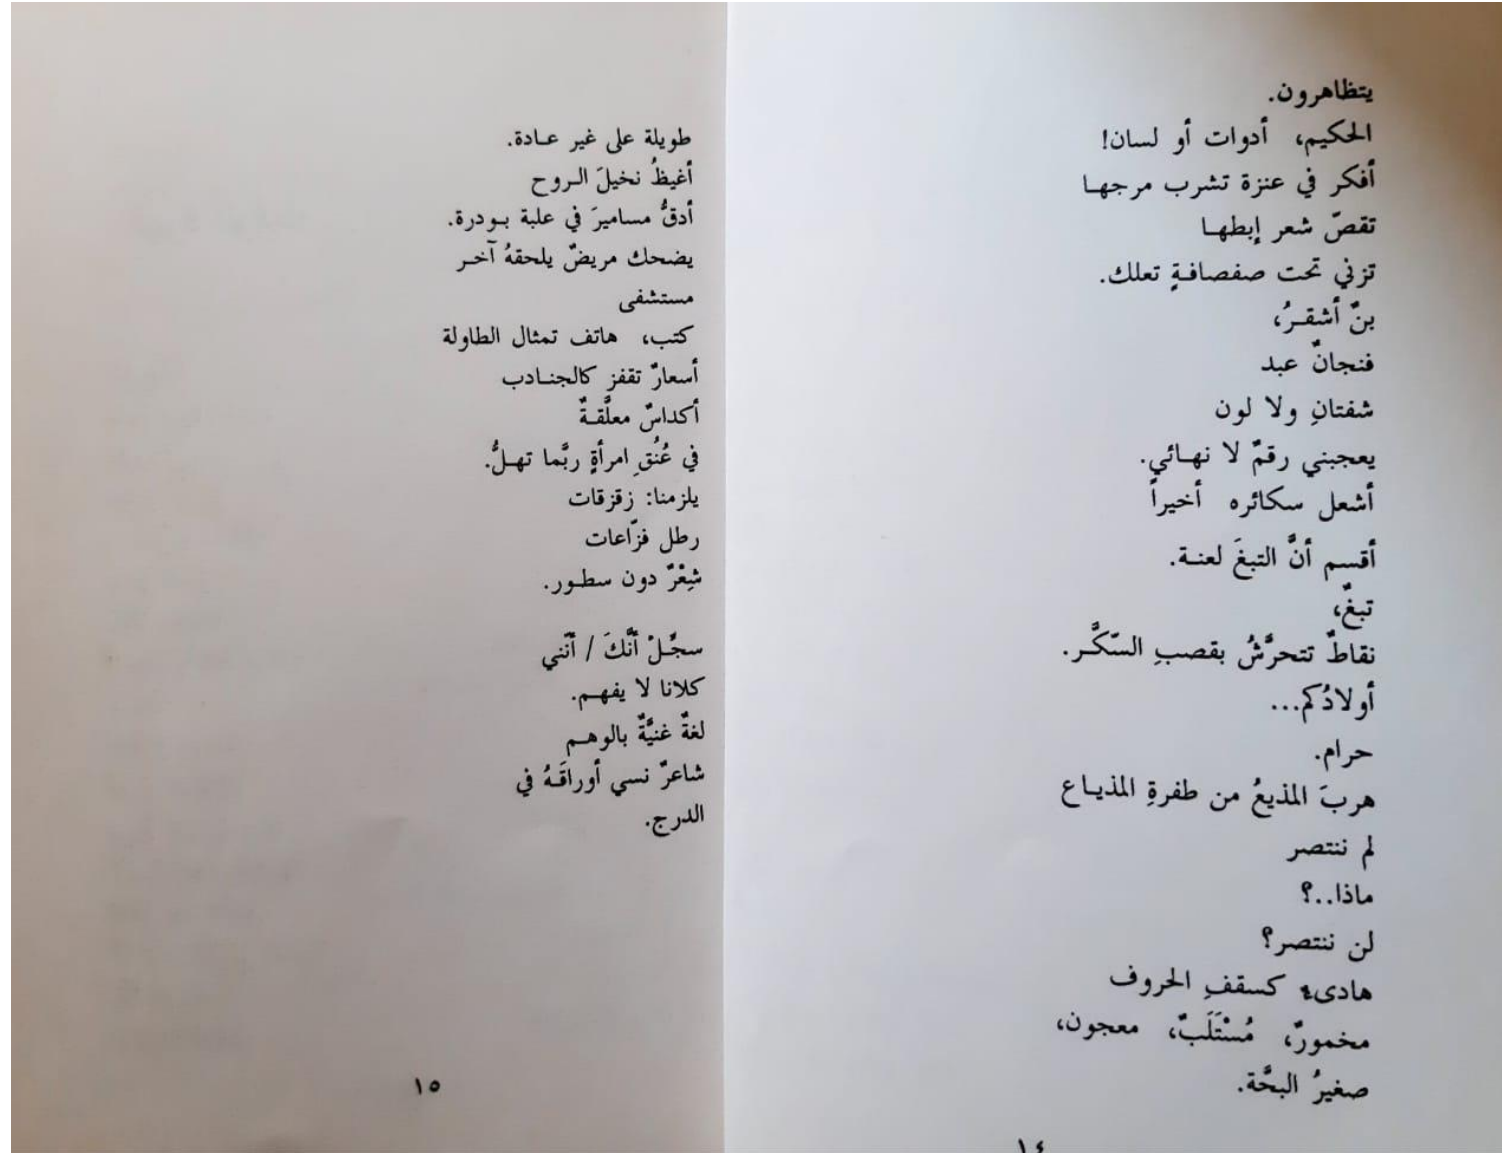 يتظاهرون.
الحكيم، أدوات أو لسان!
أفكر في عنزة تشرب مرجهـا
تقصّ شعر إبطهـا
تزني تحت صفصافـةٍ تعلك.
بنٌ أشقـرُ،
فنجانٌ عبد
شفتانِ ولا لون
يعجبني رقمٌ لا نهـائي.
أشعل سكائره أخيراً
أقسم أنَّ التبغَ لعنـة.
تبغٌ،
نقاطٌ تتحرَّشُ بقصبِ السّكَّـر.
أولادُكم...
حرام.
هربَ المذيعُ من طفرةِ المذيـاع
لم ننتصر
ماذا..؟
لن ننتصر؟
هادىء كسقفِ الحروف
مخمورٌ، مُسْتَلَبٌ، معجون،
صغيرُ البحَّة.
١٤
طويلة على غير عـادة.
أغيظُ نخيلَ الـروح
أدقُّ مساميرَ في علبة بـودرة.
يضحك مريضٌ يلحقهُ آخـر
مستشفى
كتب، هاتف تمثال الطاولة
أسعارٌ تقفز كالجنـادب
أكداسٌ معلَّقـةٌ
في عُنُقِ امرأةٍ ربَّما تهـلُّ.
يلزمنا: زقزقات
رطل فزّاعات
شِعْرٌ دون سطـور.
سجِّـلْ أنَّكَ / أنّني
كلانا لا يفهـم.
لغةٌ غنيَّةٌ بالوهـم
شاعرٌ نسي أوراقَـهُ في
الدرج.
١٥